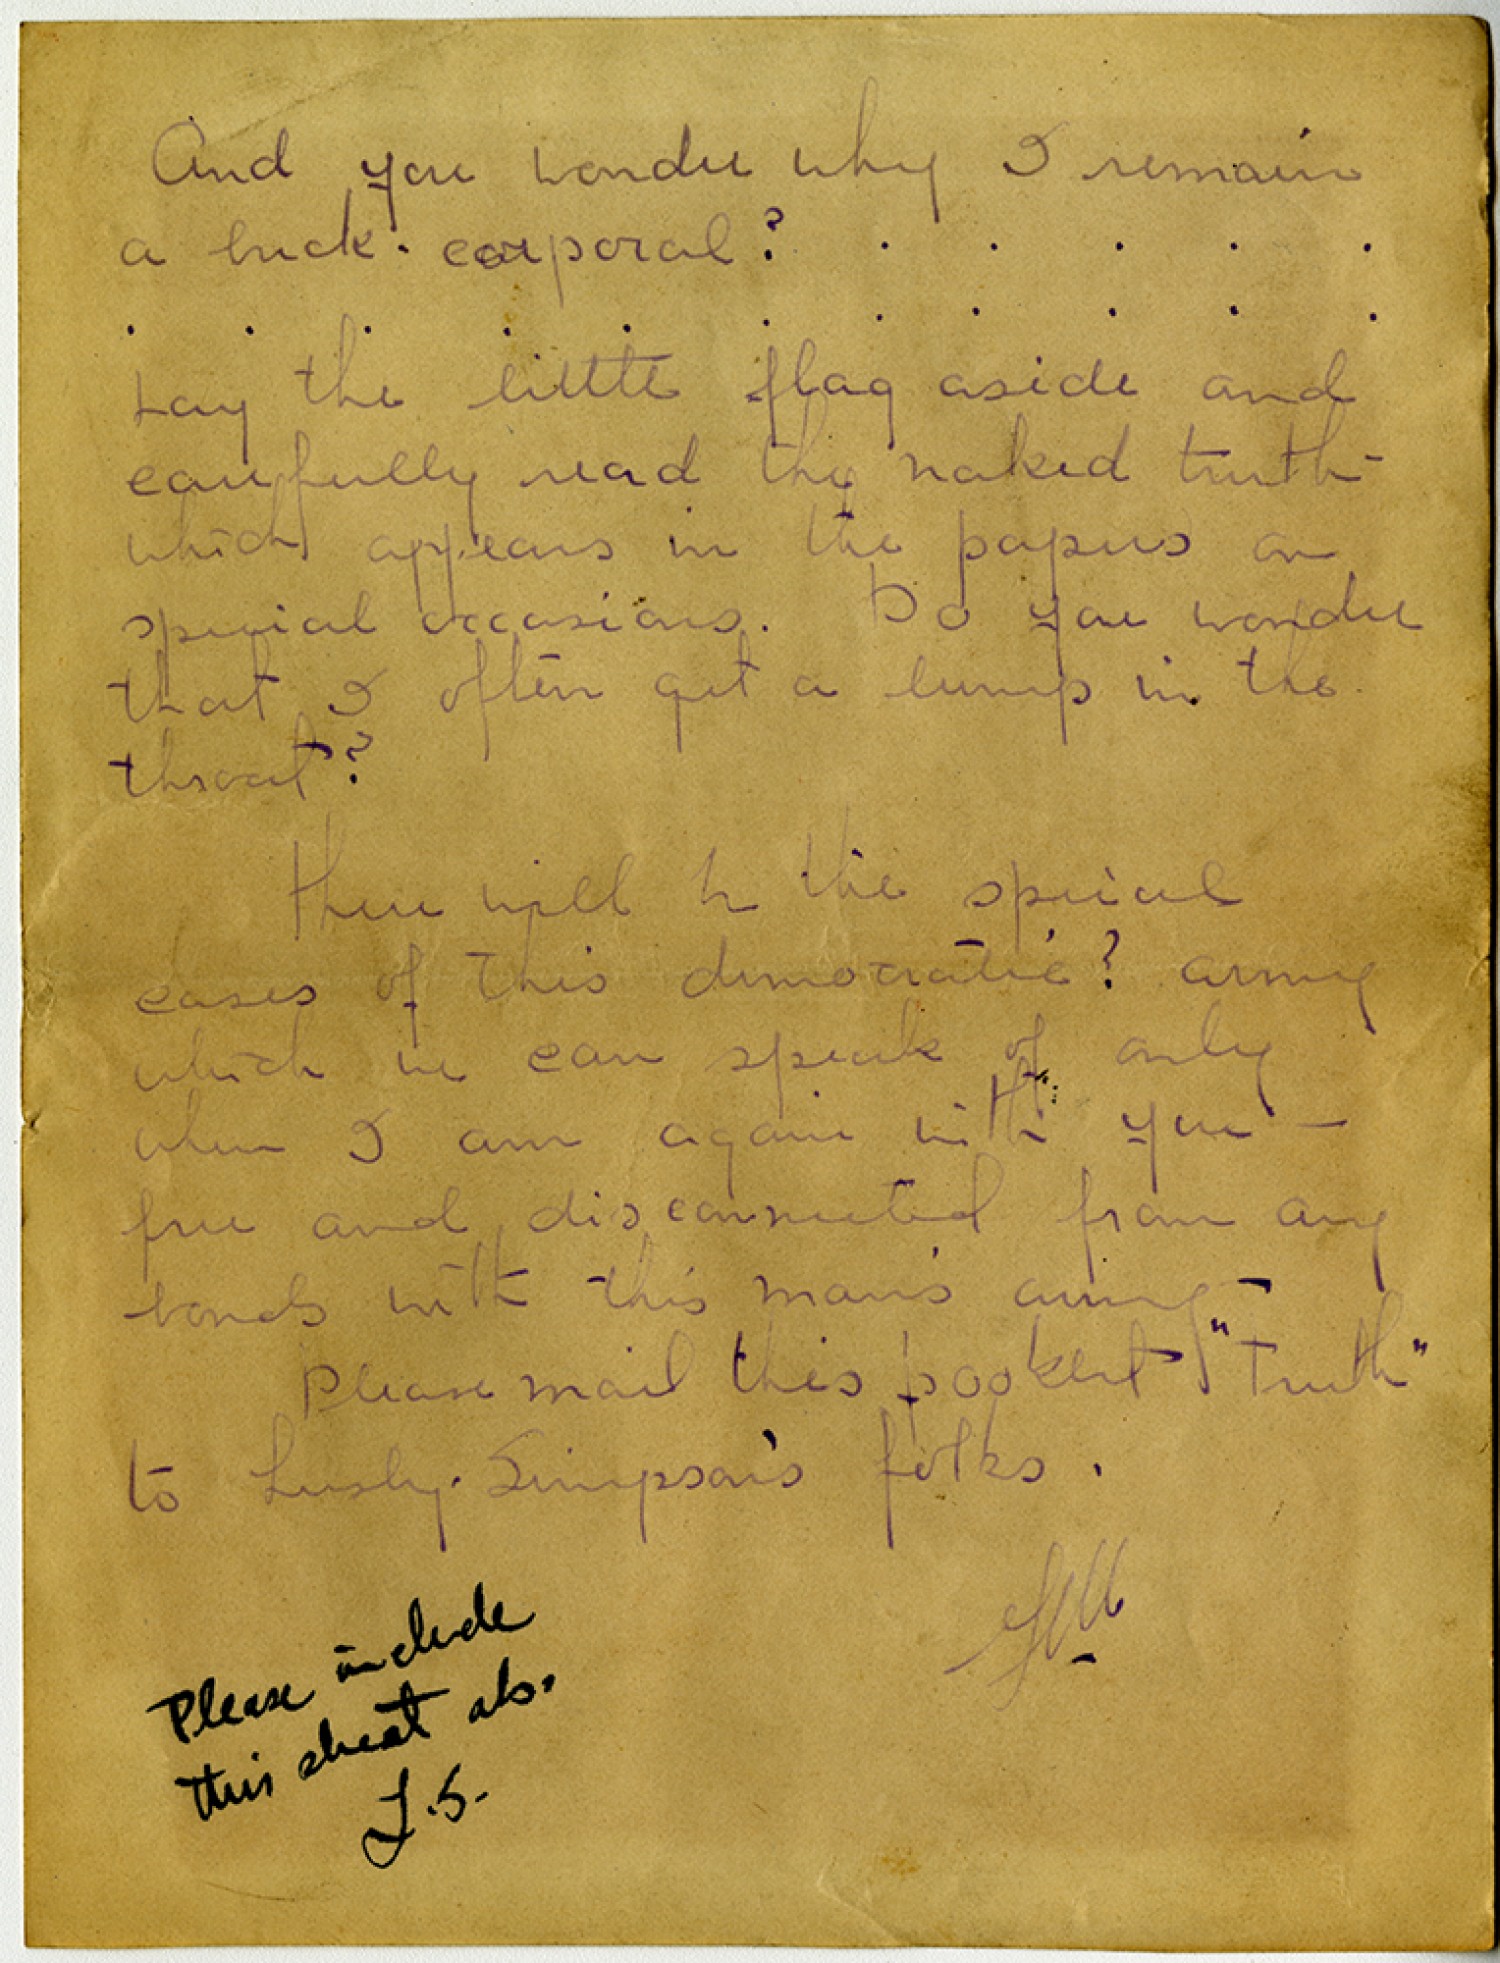 And you wonder why I remain
a buck-corporal? . . . . .
. . . . . . . . . . .
Lay the little flag aside and
carefully read the naked truth-
which appears in the papers on
special occasions. Do you wonder
that I often get a lump in the
throat?
There will be the special
cases of this democratic? army
which we can speak of only
when I am again with you —
free and disconnected from any
bonds with this man's army-
Please mail this "Truth"
to Lusby-Simpson's folks.
Please include
this sheet also.
L.S.